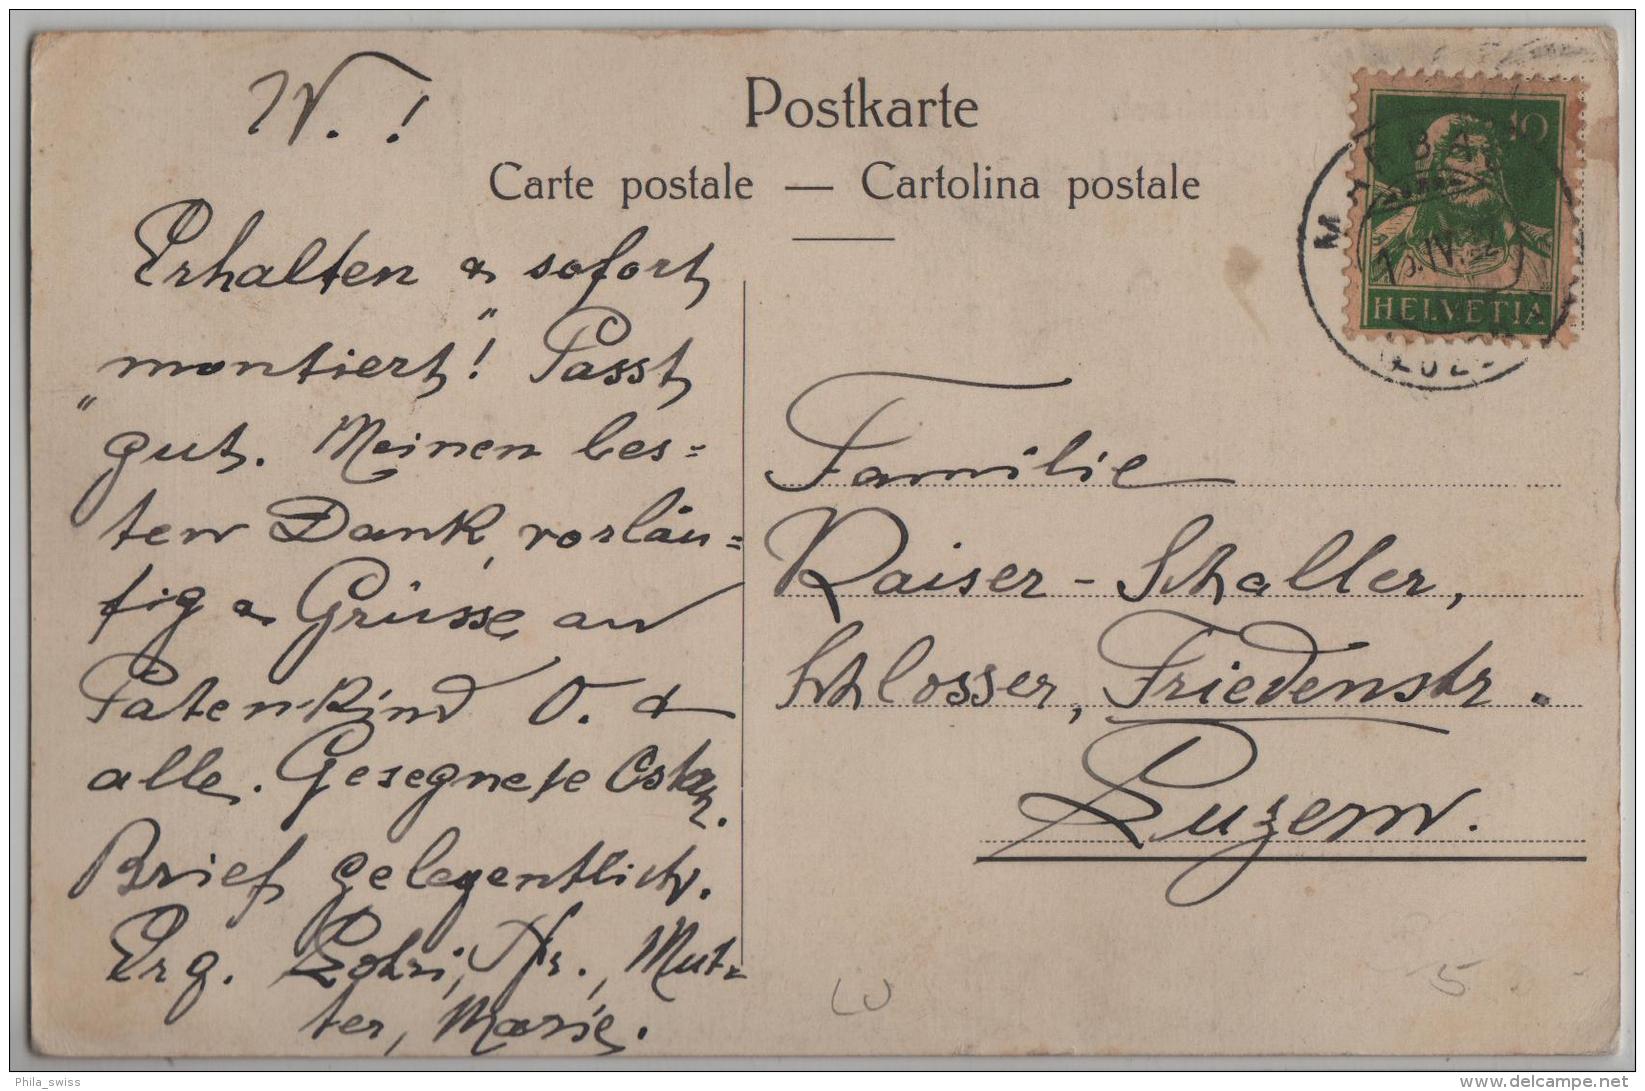 W.!
Postkarte
Carte postale — Cartolina postale
Erhalten & sofort
"montiert"! Passt
gut. Meinen bes=
ten Dank, vorläu=
fig & Grüsse an
Patenkind O. &
alle. Gesegnete Ostern.
Brief gelegentlich.
Erg. Pfr., Mut=
ter, Marie.
10
HELVETIA
Familie
Kaiser-Schaller,
Schlosser, Friedenstr.
Luzern.
5
Phila_swiss
www.delcampe.net